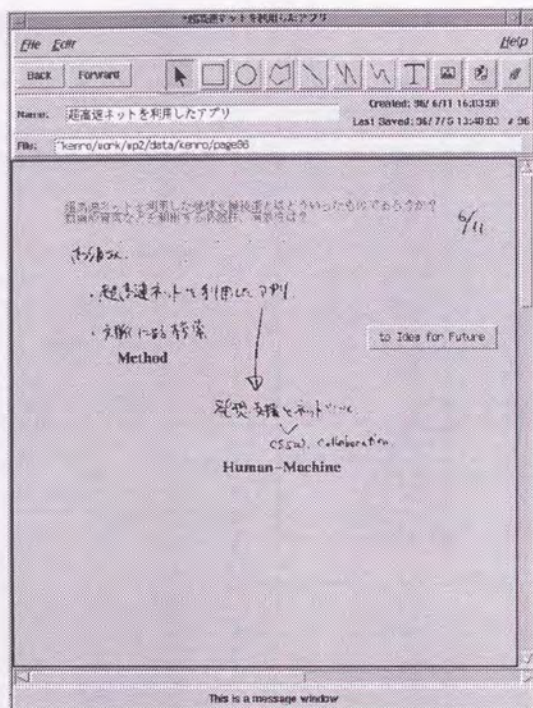 *超高速ネットを利用したアプリ
File Edit Help
Back Forward
Name: 超高速ネットを利用したアプリ
Created: 96/ 6/11 16:03:00
Last Saved: 96/ 7/ 5 13:40:03 # 96
File: ~kenro/work/wp2/data/kenro/page96
超高速ネットを利用した発想支援技術とはどういったものであろうか?
6/11
・超高速ネットを利用したアプリ
・文脈による検索
Method
to Idea for Future
発想支援とネット
CSCW. Collaboration
Human-Machine
This is a message window